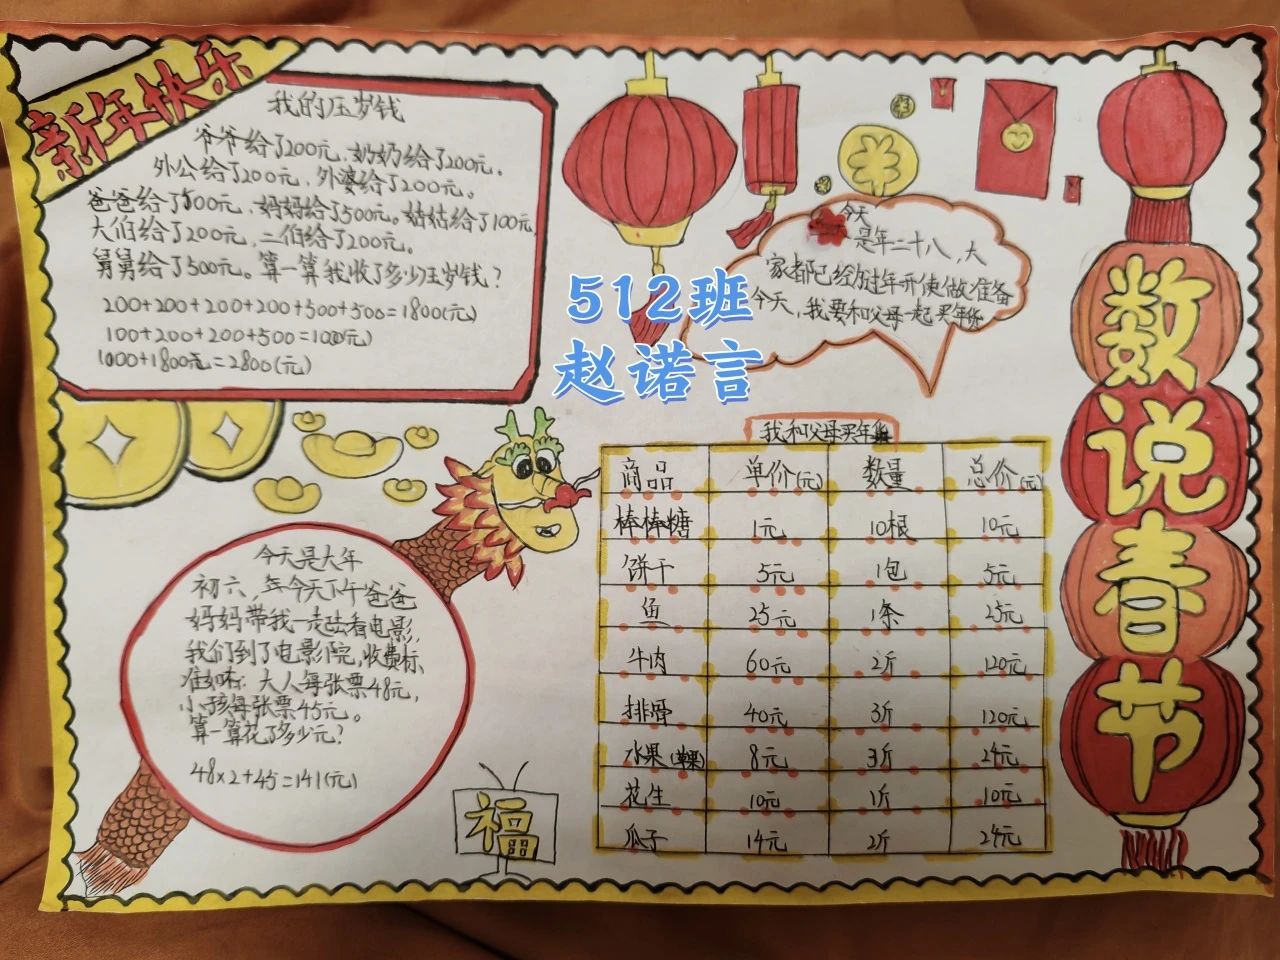 新年快乐
我的压岁钱
爷爷给了200元，奶奶给了200元。
外公给了200元，外婆给了200元。
爸爸给了500元，妈妈给了500元。姑姑给了100元，
大伯给了200元，二伯给了200元。
舅舅给了500元。算一算我收了多少压岁钱？
200+200+200+200+500+500=1800(元)
100+200+200+500=1000(元)
1000+1800元=2800(元)
今天
是年二十八，大
家都已经为过年开使做准备
今天，我要和父母一起买年货
512班
赵诺言
数说春节
我和父母买年货
商品 单价(元) 数量 总价(元)
棒棒糖 1元 10根 10元
饼干 5元 1包 5元
鱼 25元 1条 25元
牛肉 60元 2斤 120元
排骨 40元 3斤 120元
水果(苹果) 8元 3斤 24元
花生 10元 1斤 10元
瓜子 14元 2斤 24元
今天是大年
初六，年今天下午爸爸
妈妈带我一起去看电影，
我们到了电影院，收费标
准如右：大人每张票48元，
小孩每张票45元。
算一算花了多少元？
48×2+45=141(元)
福